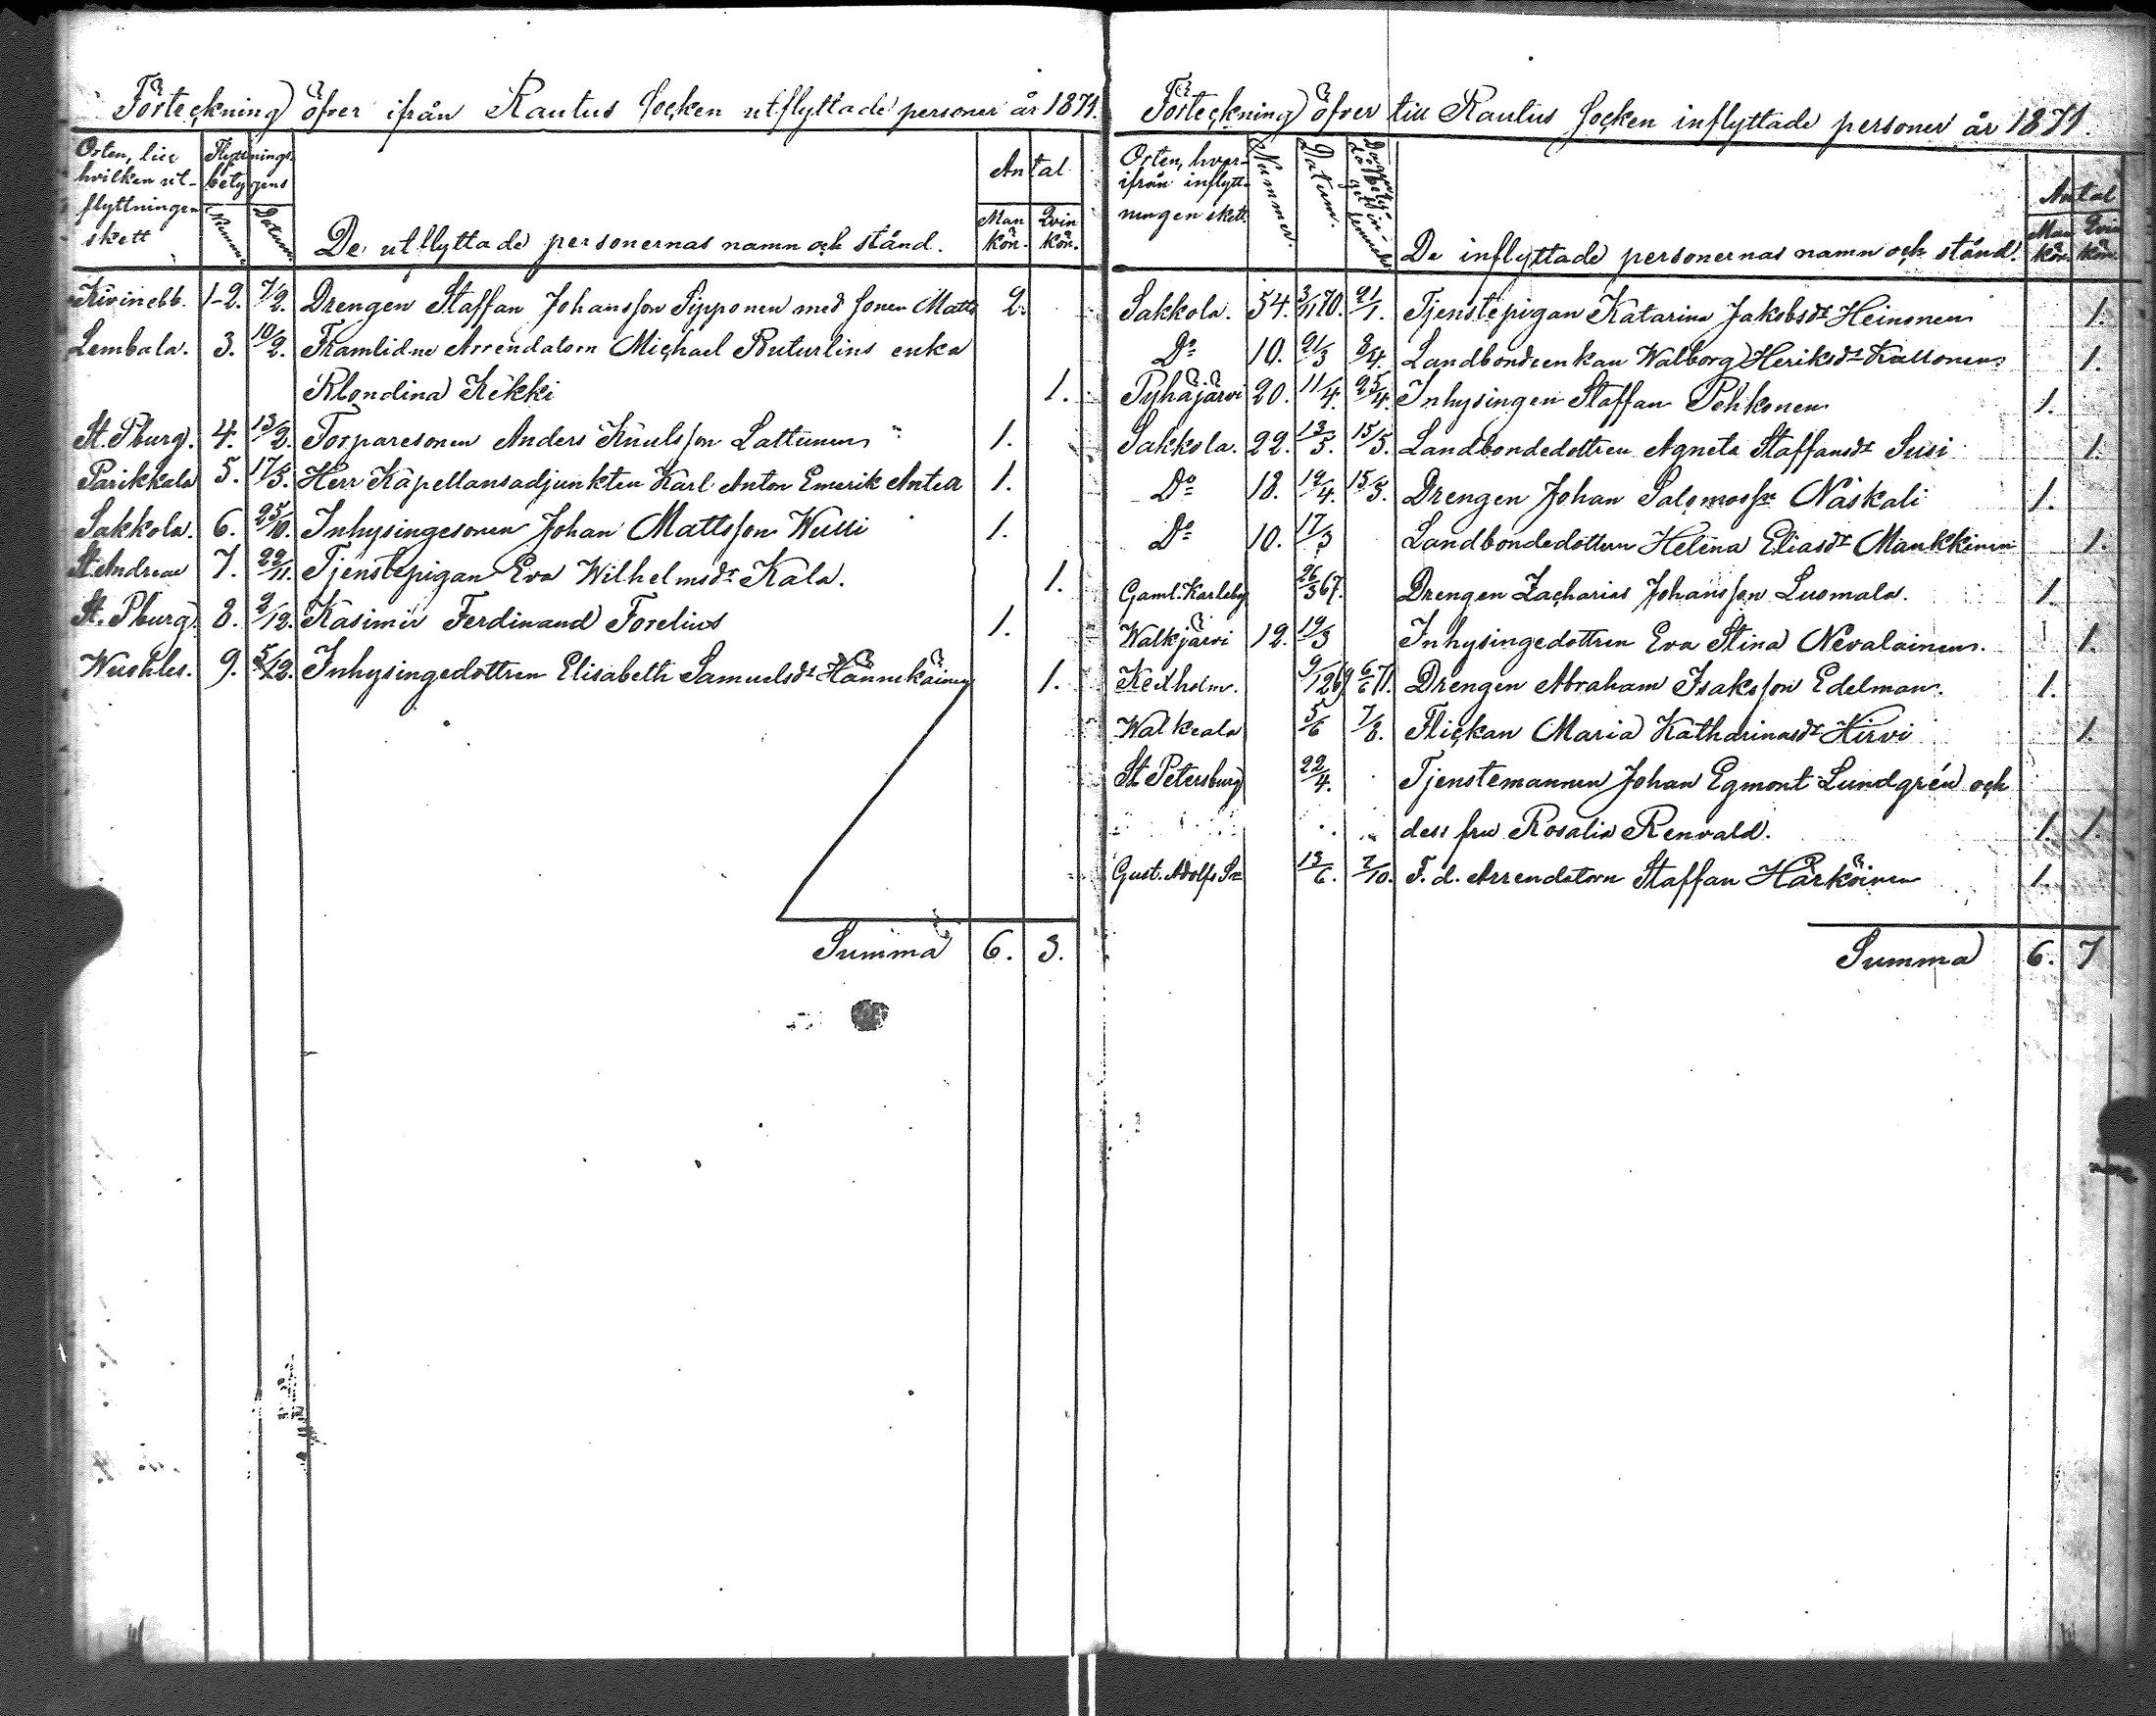 Förteckning öfver ifrån Rautus socken utflyttade personer år 1871.
Orten, till hvilken utflyttningen skett
Flyttningsbetygens
Numm.
Datum.
De utflyttade personernas namn och stånd.
Antal
Mankön.
Qvinkön.
Kivinebb. 1-2. 7/2. Drengen Staffan Johansson Sipponen med sonen Matts 2.
Lembala. 3. 10/2. Framlidne Arrendatorn Michael Buturlins enka
Blondina Kekki 1.
St. Pburg. 4. 13/2. Torparesonen Anders Knutsson Lattunen 1.
Parikkala 5. 17/5. Herr Kapellansadjunkten Karl Anton Emerik Antell 1.
Sakkola. 6. 25/10. Inhysingesonen Johan Mattsson Wulli 1.
St. Andreae 7. 22/11. Tjenstepigan Eva Wilhelmsdr Kala. 1.
St. Pburg. 8. 2/12. Kasimir Ferdinand Forelius 1.
9. 5/12. Inhysingedottren Elisabeth Samuelsdr Hännikäinen 1.
Summa 6. 3.
Förteckning öfver till Rautus socken inflyttade personer år 1871.
Orten, hvarifrån inflyttningen skett
Nummer.
Datum.
De inflyttade personernas namn och stånd.
Antal
Mankön.
Qvinkön.
Sakkola. 54. 3/11 70. 21/1. Tjenstepigan Katarina Jakobsdr Heinonen 1.
Do 10. 21/3 2/4. Landbondeenkan Walborg Heriksdr Kallonen 1.
Pyhäjärvi 20. 11/4. 25/4. Inhysingen Staffan Pehkonen 1.
Sakkola. 22. 13/5. 15/5. Landbondedottren Agneta Staffansdr Susi 1.
Do 18. 12/4. 15/5. Drengen Johan Salomonsson Näskali 1.
Do 10. 17/3 Landbondedottren Helena Eliasdr Maukkinen 1.
Gaml. Karleby 26/3 67. Drengen Zacharias Johansson Luomala. 1.
Walkjärvi 12. 19/3 Inhysingedottren Eva Stina Nevalainen. 1.
Kexholm. 9/12 69 6/6 71. Drengen Abraham Isaksson Edelman. 1.
Walkeala 5/6 7/8. Flickan Maria Katharinasdr Hirvi 1.
St. Petersburg 22/4. Tjenstemannen Johan Egmont Lundgrén och
dess fru Rosalia Renvald. 1. 1.
Gust. Adolfs Sn 13/6. 2/10. F. d. Arrendatorn Staffan Härköinen 1.
Summa 6. 7